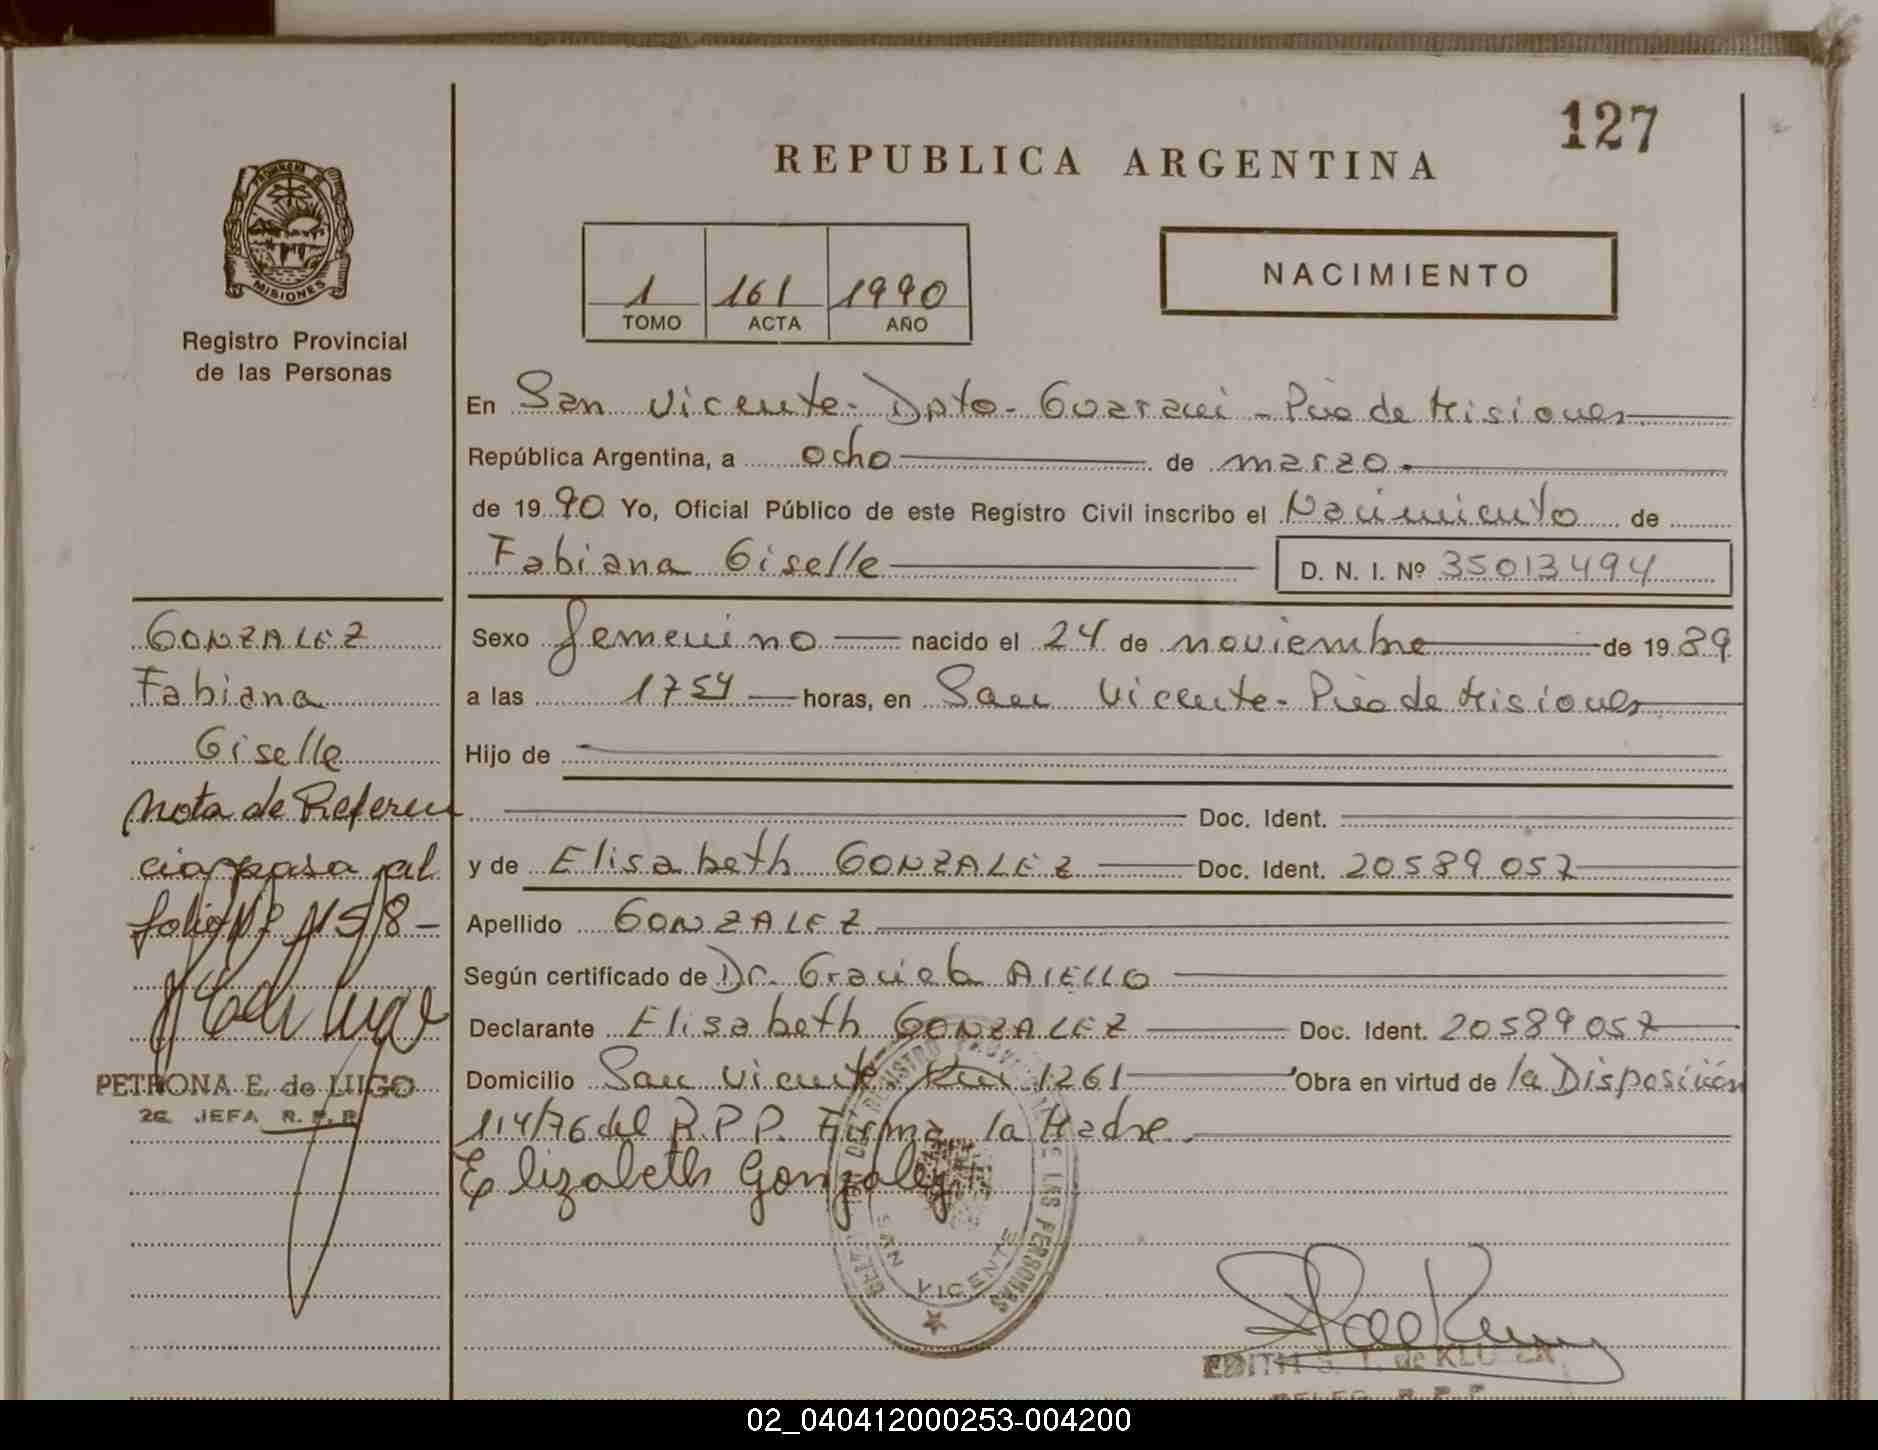 127
REPUBLICA ARGENTINA
PROVINCIA DE
MISIONES
Registro Provincial
de las Personas
1 161 1990
TOMO ACTA AÑO
NACIMIENTO
En San Vicente - Dpto - Guaraní - Pcia de Misiones
República Argentina, a ocho de marzo.
de 1990 Yo, Oficial Público de este Registro Civil inscribo el Nacimiento de
Fabiana Giselle D. N. I. Nº 35013494
Sexo femenino nacido el 24 de noviembre de 1989
a las 1754 horas, en San Vicente - Pcia de Misiones
Hijo de
Doc. Ident.
y de Elisabeth GONZALEZ Doc. Ident. 20589057
Apellido GONZALEZ
Según certificado de Dr. Graciela AIELLO
Declarante Elisabeth GONZALEZ Doc. Ident. 20589057
Domicilio San Vicente Km 1261 Obra en virtud de la Disposición
114/76 del R.P.P. Firma la Madre.
Elizabeth Gonzalez
GONZALEZ
Fabiana
Giselle
Nota de Referen
cia pasa al
folio Nº 158-
PETRONA E. de LUGO
2a JEFA R.P.P.
SAN VICENTE
EDITH
02_040412000253-004200